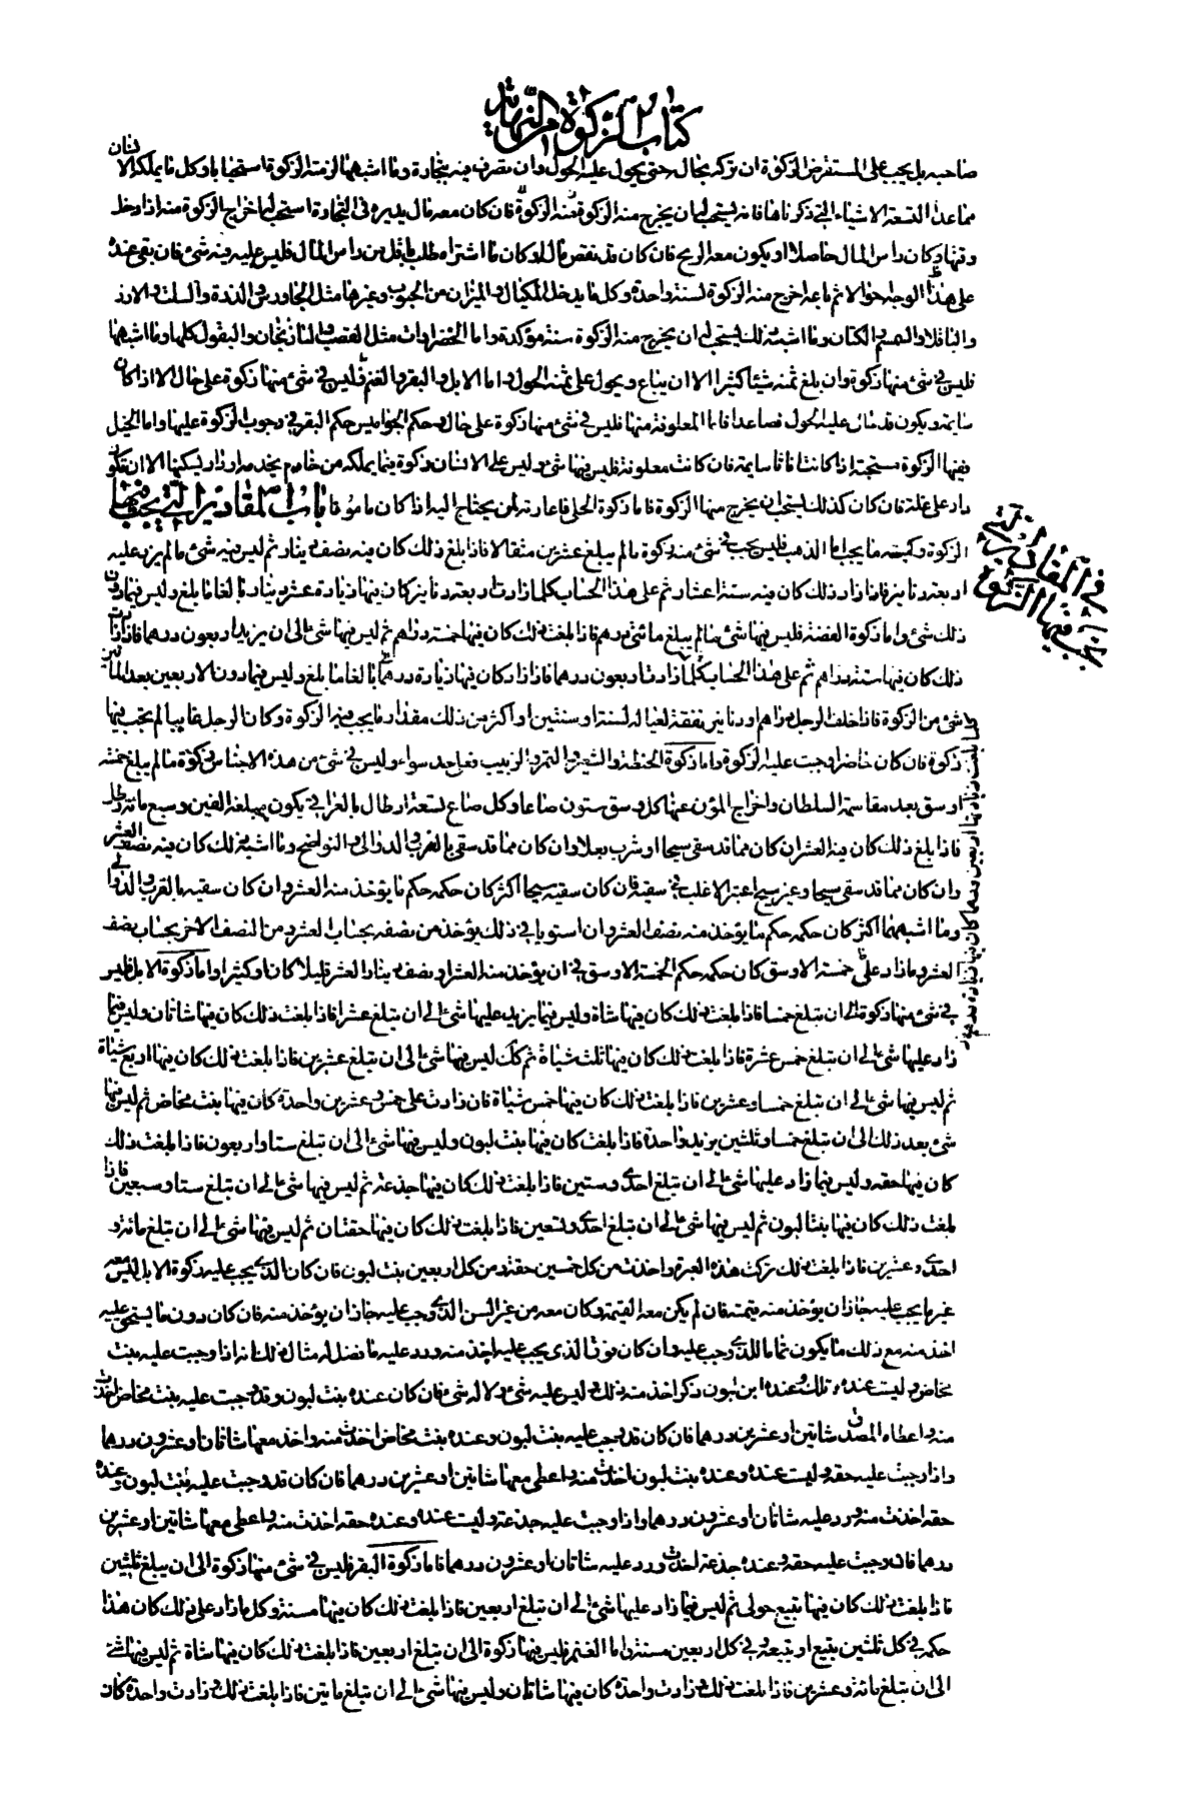 كتاب الزكوة من النهاية
صاحبه بل يجب على المستقرض الزكوة ان تركه بحاله حتى يحول عليه الحول وان تصرف فيه بتجارة وما اشبهها لزمته الزكوة استحبابا وكل ما يملكه الانسان
مما عدا التسعة الاشياء التي ذكرناها فانه يستحب له ان يخرج منه الزكوة فان كان معه مال يديره في التجارة استحب له اخراج الزكوة منه اذا دخل
وقتها وكان راس المال حاصلا او يكون معه الربح فان كان قد نقص ماله او كان ما اشتراه طلب باقل من راس المال فليس عليه فيه شئ فان بقي عنده
على هذا الوجه حوالا ثم باعه اخرج منه الزكوة لسنة واحدة وكل ما يدخل المكيال والميزان من الحبوب وغيرها مثل الجاورس والذرة والسلت والارز
والباقلا والسمسم والكتان وما اشبه ذلك يستحب له ان يخرج منه الزكوة سنة مؤكدة واما الخضراوات مثل القصب والباذنجان والبقول كلها وما اشبهها
فليس في شئ منها زكوة وان بلغ ثمنه شيئا كثيرا الا ان يباع ويحول على ثمنه الحول واما الابل والبقر والغنم فليس في شئ منها زكوة على حال الا اذا كان
سايمة ويكون قد حال عليه الحول فصاعدا فاما المعلوفة منها فليس في شئ منها زكوة على حال وحكم الجواميس حكم البقر في وجوب الزكوة عليها واما الخيل
ففيها الزكوة مستحبة اذا كانت اناثا سايمة فان كانت معلوفة فليس فيها شئ وليس على الانسان زكوة فيما يملكه من خادم يخدمه او دار يسكنها الا ان تكون
دار غلة فان كان كذلك يستحب ان يخرج منها الزكوة فاما زكوة الحلي فاعارته لمن يحتاج اليه اذا كان مامونا باب المقادير التي يجب فيها
الزكوة وكمية ما يجب اما الذهب فليس يجب في شئ منه زكوة ما لم يبلغ عشرين مثقالا فاذا بلغ ذلك كان فيه نصف دينار ثم ليس فيه شئ ما لم يزد عليه
اربعة دنانير فاذا زاد ذلك كان فيه ستة اعشار ثم على هذا الحساب كلما زادت اربعة دنانير كان فيها زيادة عشر دينار بالغا ما بلغ وليس فيما دون
ذلك شئ واما زكوة الفضة فليس فيها شئ ما لم يبلغ مائتي درهم فاذا بلغت ذلك كان فيها خمسة دراهم ثم ليس فيها شئ الى ان يزيد اربعون درهما فاذا زادت
ذلك كان فيها ستة دراهم ثم على هذا الحساب كلما زادت اربعون درهما فاذا زاد كان فيها زيادة درهم بالغا ما بلغ وليس فيما دون الاربعين بعد المائتين
شئ من الزكوة فاذا خلف الرجل دراهم او دنانير نفقة لعياله لسنة او سنتين او اكثر من ذلك مقدار ما يجب فيه الزكوة وكان الرجل غايبا لم يجب فيها
زكوة فان كان حاضرا وجبت عليه الزكوة واما زكوة الحنطة والشعير والتمر والزبيب فعلى حد سواء وليس في شئ من هذه الاجناس زكوة ما لم يبلغ خمسة
اوسق بعد مقاسمة السلطان واخراج المؤن عنها كل وسق ستون صاعا وكل صاع تسعة ارطال بالعراقي يكون مبلغه الفين وسبع مائة رطل
فاذا بلغ ذلك كان فيه العشر ان كان مما قد سقي سيحا او شرب بعلا وان كان مما قد سقي بالغرب والدوالي والنواضح وما اشبه ذلك كان فيه نصف العشر
وان كان مما قد سقي سيحا وغير سيح اعتبر الاغلب في سقيه فان كان سقيه سيحا اكثر كان حكمه حكم ما يؤخذ منه العشر وان كان سقيه بالغرب والدوالي
وما اشبههما اكثر كان حكمه حكم ما يؤخذ منه نصف العشر وان استويا في ذلك يؤخذ من نصفه بحساب العشر ومن النصف الاخر بحساب نصف
العشر وما زاد على خمسة الاوسق كان حكمه حكم الخمسة الاوسق في ان يؤخذ منه العشر او نصف العشر قليلا كان او كثيرا واما زكوة الابل فليس
في شئ منها زكوة الى ان تبلغ خمسا فاذا بلغت ذلك كان فيها شاة وليس فيما يزيد عليها شئ الى ان تبلغ عشرا فاذا بلغت ذلك كان فيها شاتان وليس فيما
زاد عليها شئ الى ان تبلغ خمس عشرة فاذا بلغت ذلك كان فيها ثلث شياة ثم كك ليس فيها شئ الى ان تبلغ عشرين فاذا بلغت ذلك كان فيها اربع شياة
ثم ليس فيها شئ الى ان تبلغ خمسا وعشرين فاذا بلغت ذلك كان فيها خمس شياة فان زادت على خمس وعشرين واحدة كان فيها بنت مخاض ثم ليس فيها
شئ بعد ذلك الى ان تبلغ خمسا وثلثين يزيد واحدة فاذا بلغت كان فيها بنت لبون وليس فيها شئ الى ان تبلغ ستا واربعون فاذا بلغت ذلك
كان فيها حقه وليس فيما زاد عليها شئ الى ان تبلغ احدى وستين فاذا بلغت ذلك كان فيها جذعة ثم ليس فيها شئ الى ان تبلغ ستا وسبعين فاذا
بلغت ذلك كان فيها بنتا لبون ثم ليس فيها شئ الى ان تبلغ احدى وتسعين فاذا بلغت ذلك كان فيها حقتان ثم ليس فيها شئ الى ان تبلغ مائة و
احدى وعشرين فاذا بلغت ذلك تركت هذه العبرة واخذت من كل خمسين حقة ومن كل اربعين بنت لبون فان كان الذي يجب عليه زكوة الابل ليس معه
غير ما يجب عليه جاز ان يؤخذ منه قيمته فان لم يكن معه القيمة وكان معه من غير السن الذي وجب عليه جاز ان يؤخذ منه فان كان دون ما يستحق عليه
اخذ منه مع ذلك ما يكون تماما للذي وجب عليه وان كان فوق الذي يجب عليه اخذ منه ورد عليه ما فضل له مثال ذلك انه اذا وجبت عليه بنت
مخاض وليست عنده تلك وعنده ابن لبون ذكر اخذ منه ذلك وليس عليه شئ ولا له شئ فان كان عنده بنت لبون وقد وجبت عليه بنت مخاض اخذت
منه واعطاه المصدق شاتين او عشرين درهما فان كان قد وجب عليه بنت لبون وعنده بنت مخاض اخذت منه واخذ معها شاتان او عشرون درهما
واذا وجبت عليه حقه وليست عنده وعنده بنت لبون اخذت منه واعطى معها شاتين او عشرين درهما فان كان قد وجبت عليه بنت لبون وعنده
حقه اخذت منه ورد عليه شاتان او عشرون درهما واذا وجبت عليه جذعة وليست عنده وعنده حقه اخذت منه واعطى معها شاتين او عشرين
درهما فان وجبت عليه حقه وعنده جذعة اخذت ورد عليه شاتان او عشرون درهما فاما زكوة البقر فليس في شئ منها زكوة الى ان يبلغ ثلثين
فاذا بلغت ذلك كان فيها تبيع حولي ثم ليس فيما زاد عليها شئ الى ان تبلغ اربعين فاذا بلغت ذلك كان فيها مسنة وكل ما زاد على ذلك كان هذا
حكمه في كل ثلثين تبيع او تبيعة وفي كل اربعين مسنة واما الغنم فليس فيها زكوة الى ان تبلغ اربعين فاذا بلغت ذلك كان فيها شاة ثم ليس فيها شئ
الى ان تبلغ مائة وعشرين فاذا بلغت ذلك وزادت واحدة كان فيها شاتان وليس فيها شئ الى ان تبلغ مائتين فاذا بلغت ذلك وزادت واحدة كان
في المقادير التي
يجب فيها الزكوة